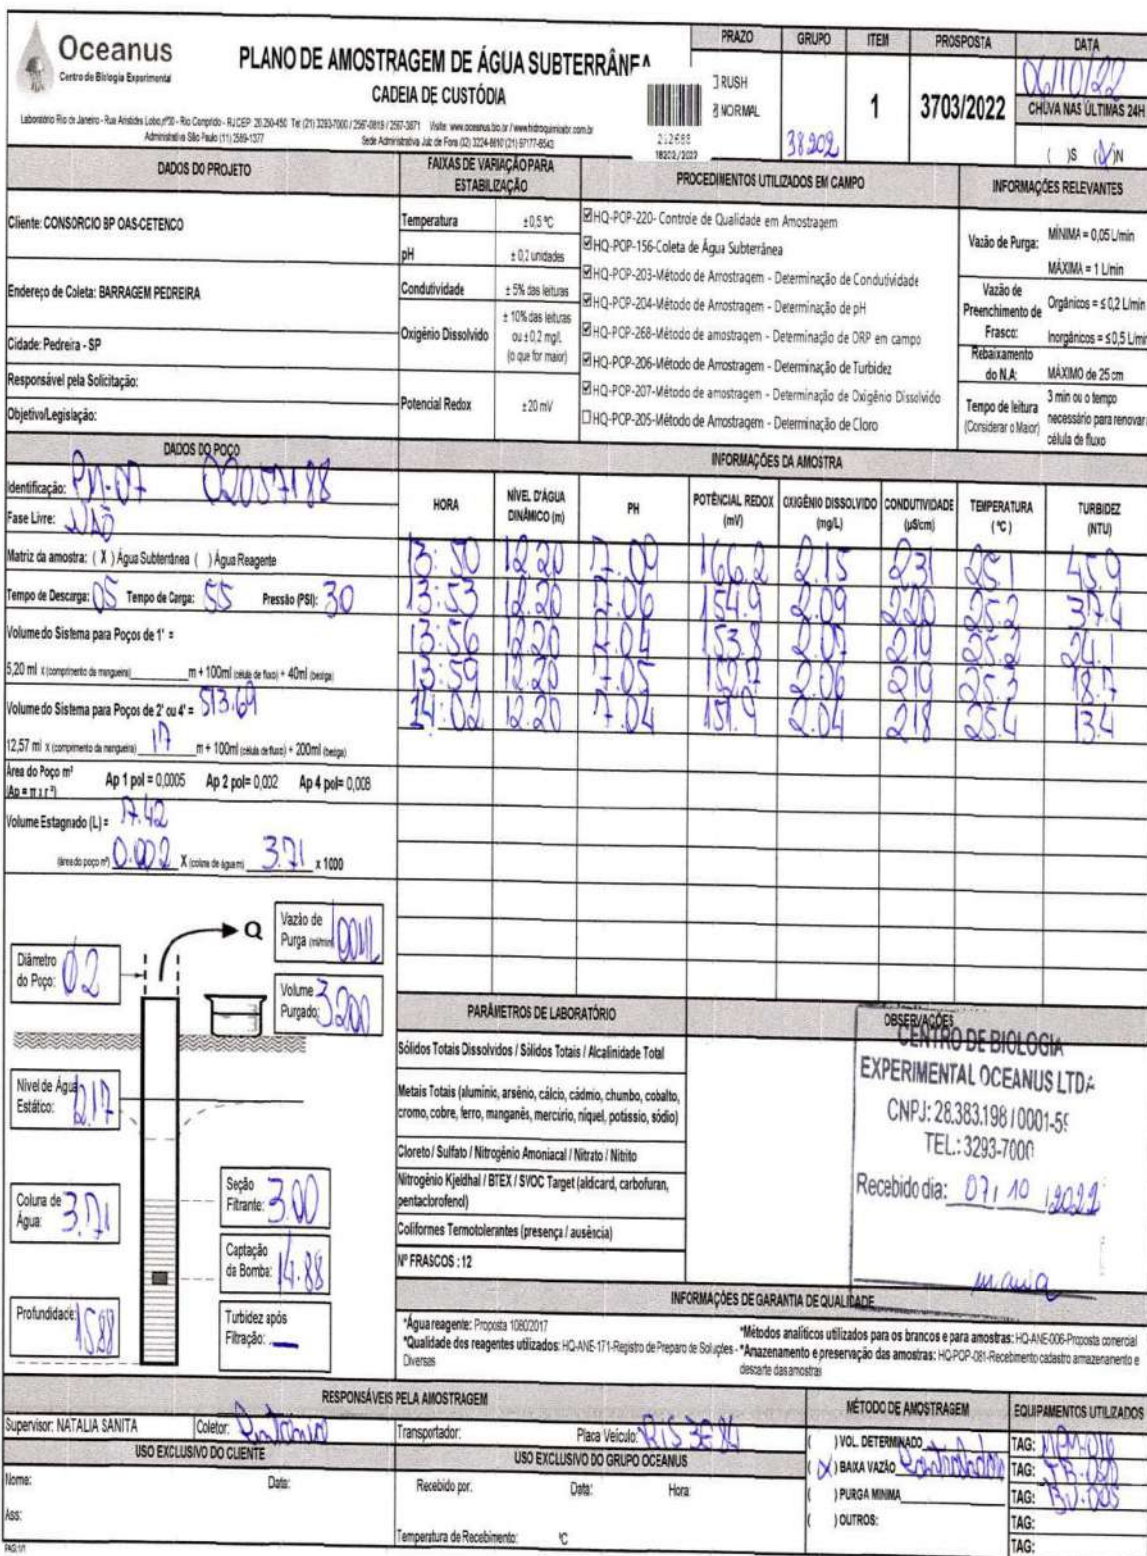 Oceanus
Centro de Biologia Experimental
PLANO DE AMOSTRAGEM DE ÁGUA SUBTERRÂNEA
CADEIA DE CUSTÓDIA
Laboratório Rio de Janeiro - Rua Aristides Lobo,nº30 - Rio Comprido - RJ.CEP 20.250-450 Tel (21) 3293-7000 / 2567-0819 / 2567-3871 Visite: www.oceanus.bio.br / www.hidroquimicabr.com.br
Administrativa São Paulo (11) 2589-1377 Sede Administrativa Juiz de Fora (32) 3224-8610 (21) 97177-6543
212688
18202/2022
PRAZO GRUPO ITEM PROSPOSTA DATA
RUSH
NORMAL
38202
1
3703/2022
06/10/22
CHUVA NAS ÚLTIMAS 24H
( )S (X)N
DADOS DO PROJETO
Cliente: CONSORCIO BP OAS-CETENCO
Endereço de Coleta: BARRAGEM PEDREIRA
Cidade: Pedreira - SP
Responsável pela Solicitação:
Objetivo/Legislação:
FAIXAS DE VARIAÇÃO PARA ESTABILIZAÇÃO
Temperatura ± 0,5 ºC
pH ± 0,2 unidades
Condutividade ± 5% das leituras
Oxigênio Dissolvido ± 10% das leituras ou ± 0,2 mg/L (o que for maior)
Potencial Redox ± 20 mV
PROCEDIMENTOS UTILIZADOS EM CAMPO
☑HQ-POP-220- Controle de Qualidade em Amostragem
☑HQ-POP-156-Coleta de Água Subterrânea
☑HQ-POP-203-Método de Amostragem - Determinação de Condutividade
☑HQ-POP-204-Método de Amostragem - Determinação de pH
☑HQ-POP-268-Método de amostragem - Determinação de ORP em campo
☑HQ-POP-206-Método de Amostragem - Determinação de Turbidez
☑HQ-POP-207-Método de amostragem - Determinação de Oxigênio Dissolvido
☐HQ-POP-205-Método de Amostragem - Determinação de Cloro
INFORMAÇÕES RELEVANTES
Vazão de Purga: MÍNIMA = 0,05 L/min
MÁXIMA = 1 L/min
Vazão de Preenchimento de Frasco: Orgânicos = ≤ 0,2 L/min
Inorgânicos = ≤0,5 L/min
Rebaixamento do N.A: MÁXIMO de 25 cm
Tempo de leitura (Considerar o Maior) 3 min ou o tempo necessário para renovar a célula de fluxo
DADOS DO POÇO
Identificação: PM-07 02057188
Fase Livre: NÃO
Matriz da amostra: ( X ) Água Subterrânea ( ) Água Reagente
Tempo de Descarga: 05 Tempo de Carga: 55 Pressão (PSI): 30
Volume do Sistema para Poços de 1' =
5,20 ml x (comprimento da mangueira) m + 100ml (célula de fluxo) + 40ml (bexiga)
Volume do Sistema para Poços de 2' ou 4' = 513.69
12,57 ml x (comprimento da mangueira) 17 m + 100ml (célula de fluxo) + 200ml (bexiga)
Área do Poço m² (Ap = π x r ²) Ap 1 pol = 0,0005 Ap 2 pol= 0,002 Ap 4 pol= 0,008
Volume Estagnado (L) = 7.42
(área do poço m²) 0.002 X (coluna de água m) 3.71 x 1000
INFORMAÇÕES DA AMOSTRA
HORA NÍVEL D'ÁGUA DINÂMICO (m) PH POTÊNCIAL REDOX (mV) OXIGÊNIO DISSOLVIDO (mg/L) CONDUTIVIDADE (µS/cm) TEMPERATURA ( ºC ) TURBIDEZ (NTU)
13:50 12.20 7.09 166.2 2.15 231 25.1 45.9
13:53 12.20 7.06 154.9 2.09 220 25.2 37.4
13:56 12.20 7.04 153.8 2.07 219 25.2 24.1
13:59 12.20 7.05 152.7 2.06 219 25.3 18.7
14:02 12.20 7.04 151.9 2.04 218 25.4 13.4
Q
Vazão de Purga (ml/min) 100ML
Diâmetro do Poço: 02
Volume Purgado: 3200
Nível de Água Estático: 12.17
Coluna de Água: 3.71
Seção Filtrante: 3.00
Captação da Bomba: 14.88
Profundidade: 15.88
Turbidez após Filtração: —
PARÂMETROS DE LABORATÓRIO
Sólidos Totais Dissolvidos / Sólidos Totais / Alcalinidade Total
Metais Totais (alumínio, arsênio, cálcio, cádmio, chumbo, cobalto, cromo, cobre, ferro, manganês, mercúrio, níquel, potássio, sódio)
Cloreto / Sulfato / Nitrogênio Amoniacal / Nitrato / Nitrito
Nitrogênio Kjeldhal / BTEX / SVOC Target (aldicard, carbofuran, pentaclorofenol)
Coliformes Termotolerantes (presença / ausência)
Nº FRASCOS : 12
OBSERVAÇÕES
CENTRO DE BIOLOGIA
EXPERIMENTAL OCEANUS LTDA
CNPJ: 28.383.198/0001-59
TEL.: 3293-7000
Recebido dia: 07/10/2022
maria
INFORMAÇÕES DE GARANTIA DE QUALIDADE
*Água reagente: Proposta 1080/2017
*Qualidade dos reagentes utilizados: HQ-ANE-171-Registro de Preparo de Soluções - Diversas
*Métodos analíticos utilizados para os brancos e para amostras: HQ-ANE-006-Proposta comercial
*Amazenamento e preservação das amostras: HQ-POP-081-Recebimento cadastro armazenamento e descarte das amostras
RESPONSÁVEIS PELA AMOSTRAGEM
Supervisor: NATALIA SANITA Coletor: Antonio Transportador: Placa Veículo: RIS 3E86
MÉTODO DE AMOSTRAGEM
( ) VOL. DETERMINADO
(X) BAIXA VAZÃO Controlador
( ) PURGA MINIMA
( ) OUTROS:
EQUIPAMENTOS UTILIZADOS
TAG: MPM-018
TAG: TB-020
TAG: BV-005
TAG:
TAG:
USO EXCLUSIVO DO CLIENTE
Nome: Data:
Ass:
USO EXCLUSIVO DO GRUPO OCEANUS
Recebido por: Data: Hora:
Temperatura de Recebimento: ºC
PAG:1/1